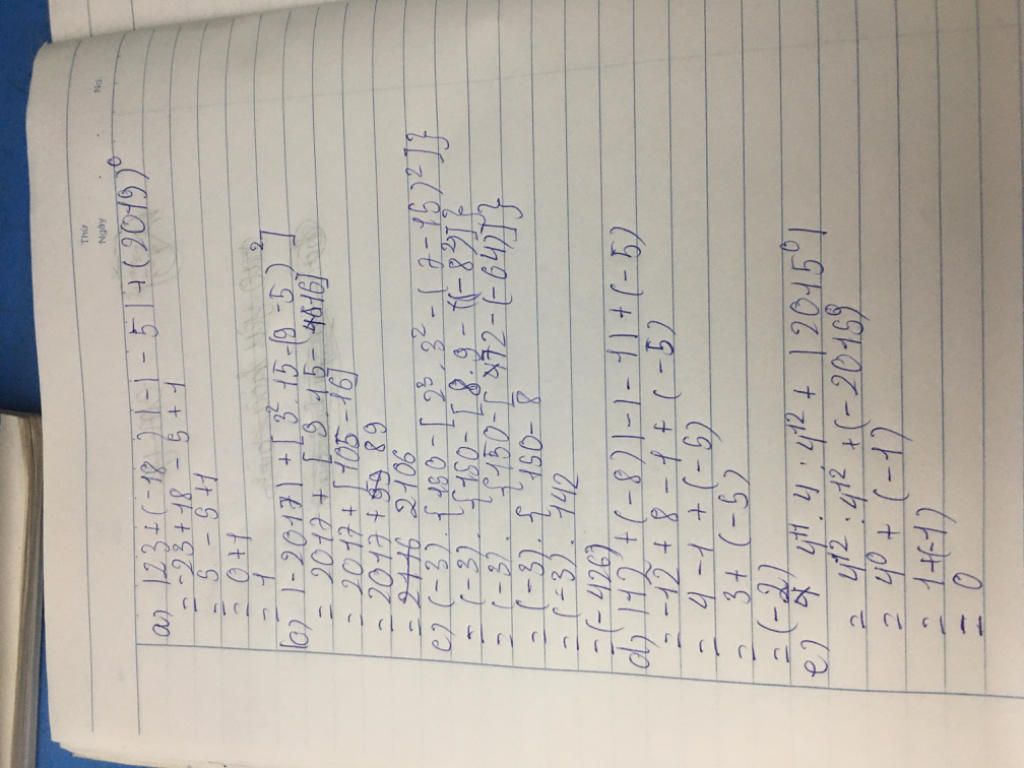 Thứ
Ngày
No.
a) |23+(-18)|-|-5|+(2019)⁰
= -23+18 - 5+1
= 5 - 5+1
= 0+1
= 1
b) |-2017|+[3².15-(9-5)²]
= 2017 + [9.15-16]
= 2017+[105-16]
= 2017+89
= 2106
c) (-3).{150-[2³.3²-(7-15)²]}
= (-3).{150-[8.9-(-8²)]}
= (-3).{150-[72-(-64)]}
= (-3).{150-8
= (-3).142
= (-426)
d) |12+(-8)|-|-1|+(-5)
= -12+8-1+(-5)
= 4-1+(-5)
= 3+(-5)
= (-2)
e) 4¹¹.4:4¹²+|2015⁰|
= 4¹²:4¹²+(-2015⁰)
= 4⁰+(-1)
= 1+(-1)
= 0